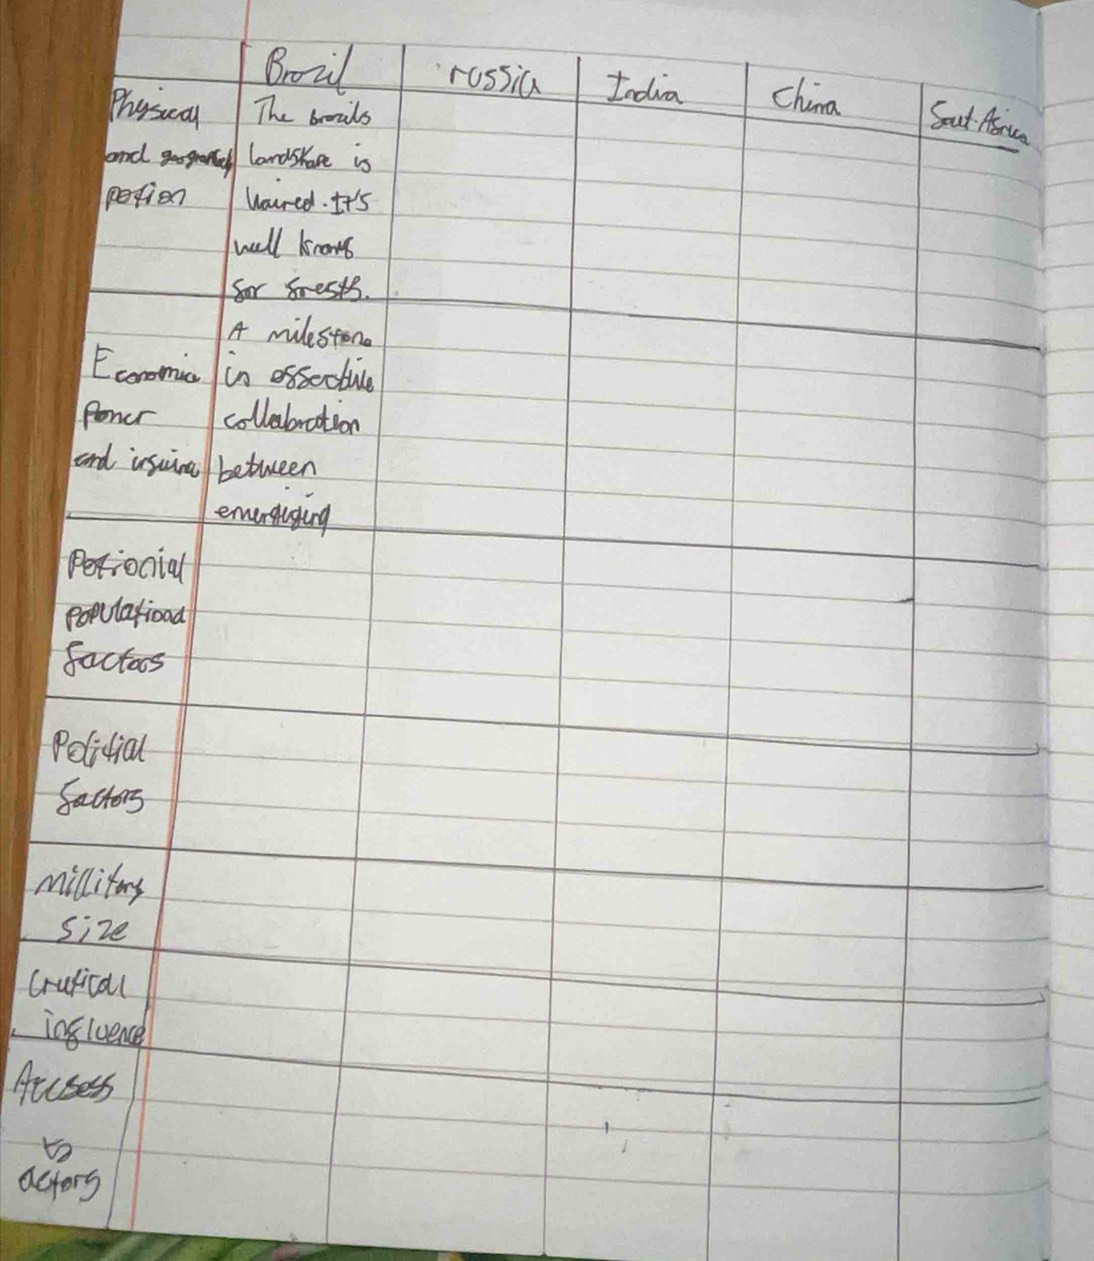 Brozil
russia
India
China
Sout Africa
Physical
and
potion
The brozils
landskape is
Vaired. It's
well knows
for foresth.
Economic
Poner
and
A milestone
in effective
collabration
between
emergiging
Potrionial
populationd
factors
Politial
factors
millitary
size
influence
Accsess
to
actors